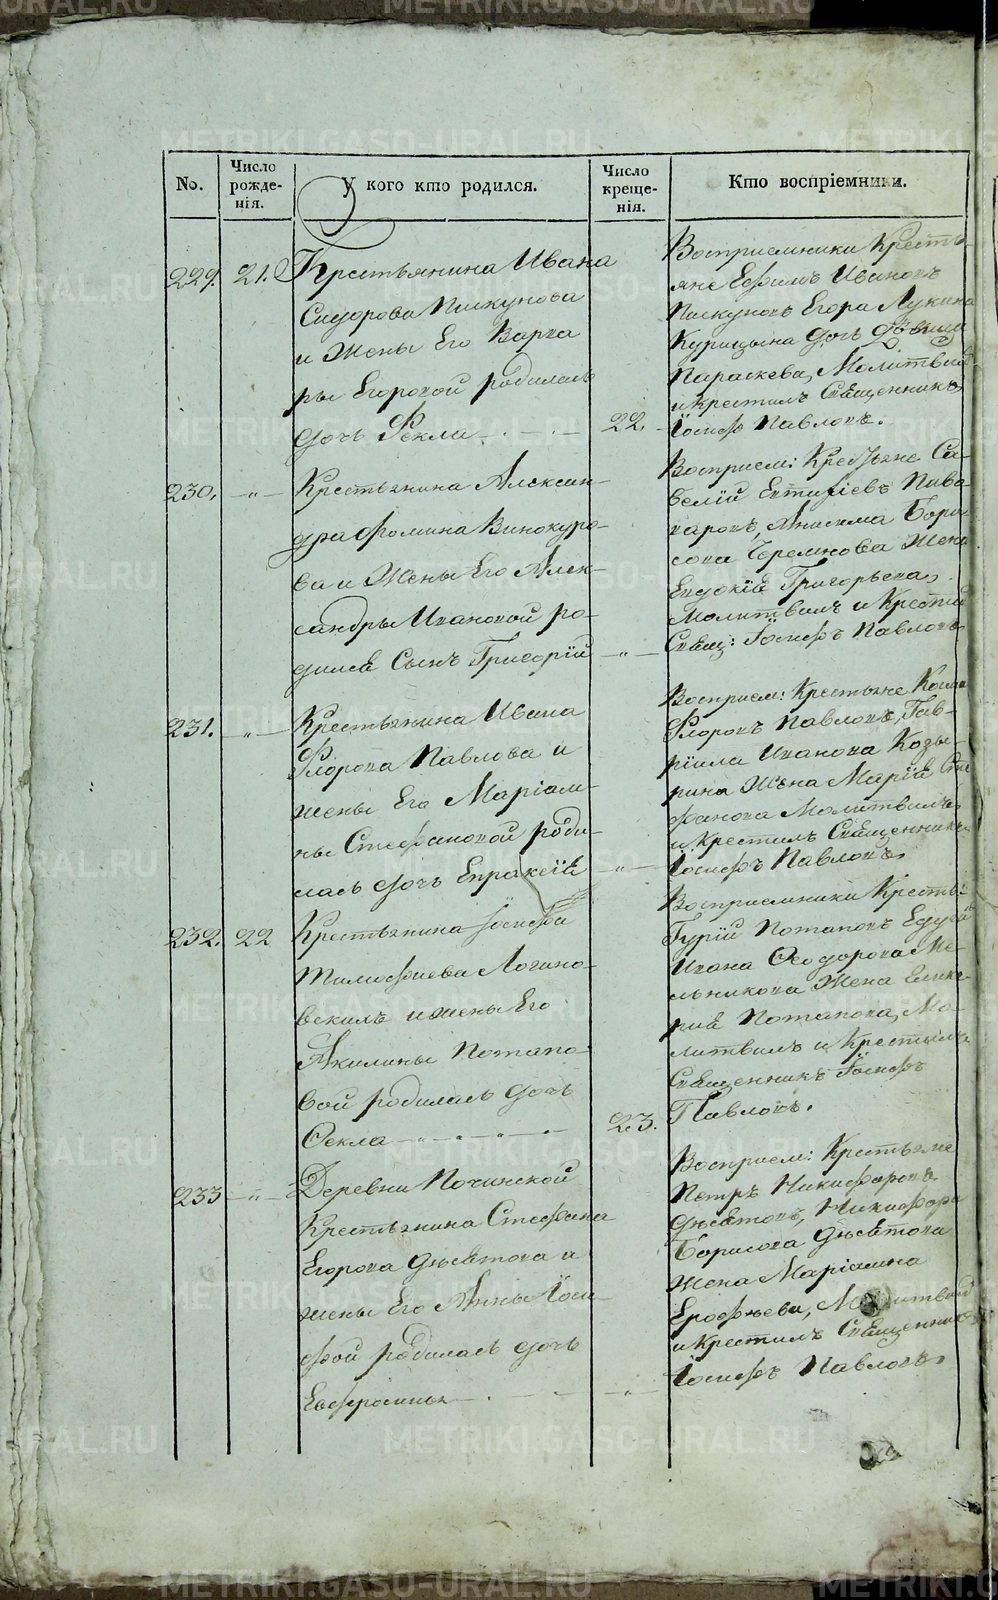 No.
Число рожде-нія.
У кого кто родился.
Число креще-нія.
Кто воспріемники.
229. 21. Крестьянина Ивана
Сидорова Пискунова
и жены Его Варва
ры Егоровой родилась
дочь Фекла
22.
Восприемники Кресть-
яне Ефимъ Ивановъ
Пискуновъ Егора Лукина
Курицына дочь девица
Параскева, Молитвилъ
и крестилъ Священникъ
Іосифъ Павловъ.
230. -"- Крестьянина Алексан-
дра Фомина Винокуро-
ва и Жены Его Алек-
сандры Ивановой ро-
дился Сынъ Григорій -"-
Восприем: Крестьяне Са-
велій Пива
варовъ, Анисима Бори
сова Жена
Евдокія Григорьева,
Молитвилъ и Крестил
Свящ: Іосифъ Павловъ
231. -"- Крестьянина Ивана
Флорова Павлова и
жены Его Маріам-
ны Стефановой роди-
лась дочь Евпраксія -"-
Восприем: Крестьяне
Флоровъ Павловъ, Гав-
ріила Иванова Козы-
рина Жена Марія Сте
фанова Молитвилъ
и Крестилъ Священникъ
Іосифъ Павловъ,
232. 22 Крестьянина Іосифа
Тимофиева Логино-
вскилъ и жены Его
Акилины Потапо-
вой родилась дочь
Фекла
23.
Восприемники Кресть:
Гурій Потаповъ
Ивана Феодорова Ме-
льникова Жена
Потапова, Мо-
литвилъ и Крестилъ
Священникъ Іосифъ
Павловъ.
233 -"- Деревни Починской
Крестьянина Стефана
Егорова Дисятова и
жены Его Анны Іоси
фой родилась дочь
Евфросинья -"-
Восприем: Крестьяне
Петръ Никифоровъ
Дисятовъ, Никифора
Борисова Дисятова
Жена Маріамна
Ерофъева, Молитвил
и Крестилъ Священник
Іосифъ Павловъ,
METRIKI.GASO-URAL.RU